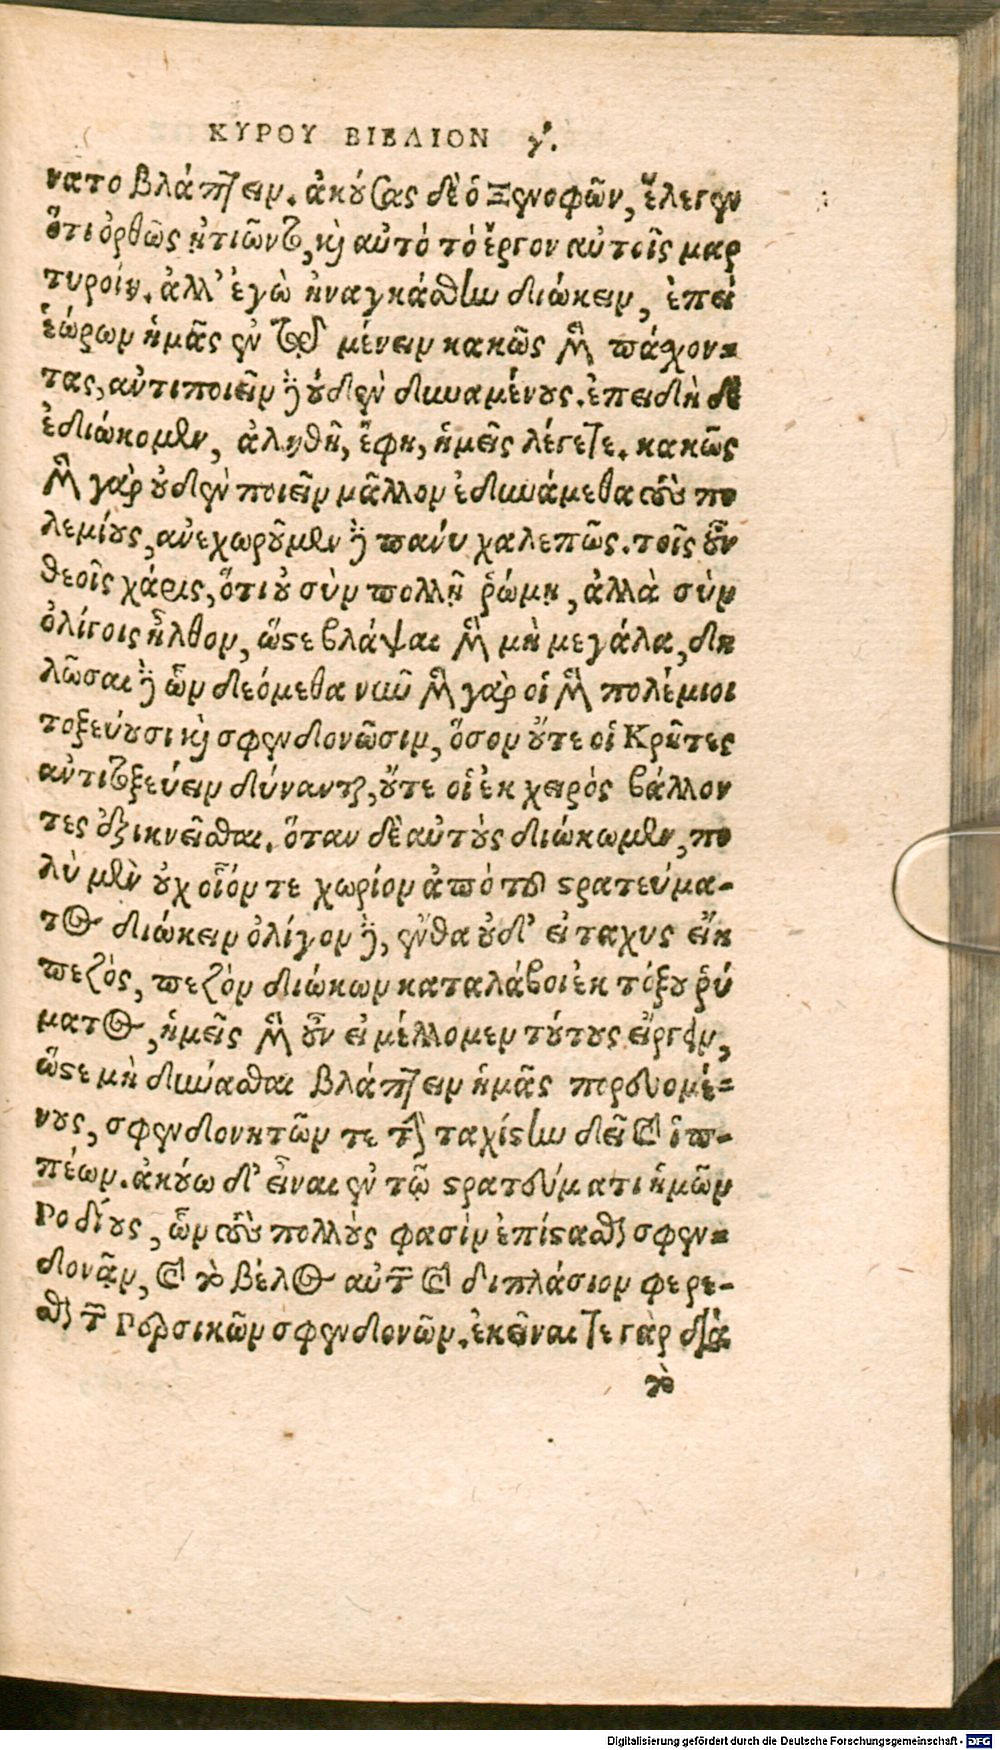 ΚΥΡΟΥ ΒΙΒΛΙΟΝ γ'.
νατο βλάπτειν. ἀκούσας δὲ ὁ Ξενοφῶν, ἔλεγεν
ὅτι ὀρθῶς ᾐτιῶντο, καὶ αὐτὸ τὸ ἔργον αὐτοῖς μαρ
τυροίη. ἀλλ' ἐγὼ ἠναγκάσθην διώκειν, ἐπεὶ
ἑώρων ἡμᾶς ἐν τῷ μένειν κακῶς μὲν πάσχον-
τας, αὐτιποιεῖν δὲ οὐδὲν δυναμένους. ἐπειδὴ δὲ
ἐδιώκομεν, ἀληθῆ, ἔφη, ἡμεῖς λέγετε. κακῶς
μὲν γὰρ οὐδὲν ποιεῖν μᾶλλον ἐδυνάμεθα τοὺς πο
λεμίους, ἀνεχωροῦμεν δὲ πανύ χαλεπῶς. τοῖς οὖν
θεοῖς χάρις, ὅτι οὐ σὺν πολλῇ ῥώμῃ, ἀλλὰ σὺν
ὀλίγοις ἦλθον, ὥστε βλάψαι μὲν μὴ μεγάλα, δη
λῶσαι δὲ ὧν δεόμεθα νῦν μὲν γὰρ οἱ μὲν πολέμιοι
τοξεύουσι καὶ σφενδονῶσιν, ὅσον οὔτε οἱ Κρῆτες
αὐτιτοξεύειν δύνανται, οὔτε οἱ ἐκ χειρὸς βάλλον
τες ἐξικνεῖσθαι. ὅταν δὲ αὐτοὺς διώκωμεν, πο
λὺ μὲν οὐχ οἷόν τε χωρίον ἀπὸ τοῦ στρατεύμα-
τος διώκειν ὀλίγον δὲ, ἔνθα οὐδ' εἰ ταχυς εἴη
πεζὸς, πεζὸν διώκων καταλάβοι ἐκ τόξου ῥύ
ματος, ἡμεῖς μὲν οὖν εἰ μέλλομεν τούτους εἴργειν,
ὥστε μὴ δύνασθαι βλάπτειν ἡμᾶς πορευομέ-
νους, σφενδονητῶν τε τὴν ταχίστην δεῖ καὶ ἱπ-
πέων. ἀκούω δ' εἶναι ἐν τῷ στρατεύματι ἡμῶν
Ροδίους, ὧν τοὺς πολλοὺς φασὶν ἐπίστασθαι σφεν-
δονᾷν, καὶ τὸ βέλος αὐτῶν καὶ διπλάσιον φερε-
σθαι τῶν Περσικῶν σφενδονῶν. ἐκεῖναι τε γὰρ διὰ
τὸ
Digitalisierung gefördert durch die Deutsche Forschungsgemeinschaft - DFG